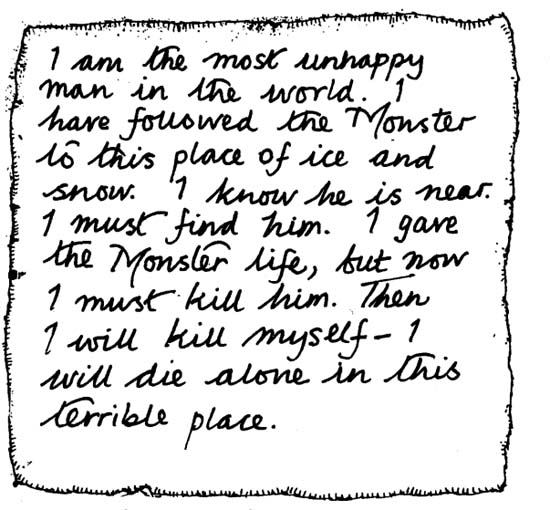 I am the most unhappy
man in the world. I
have followed the Monster
to this place of ice and
snow. I know he is near.
I must find him. I gave
the Monster life, but now
I must kill him. Then
I will kill myself – I
will die alone in this
terrible place.